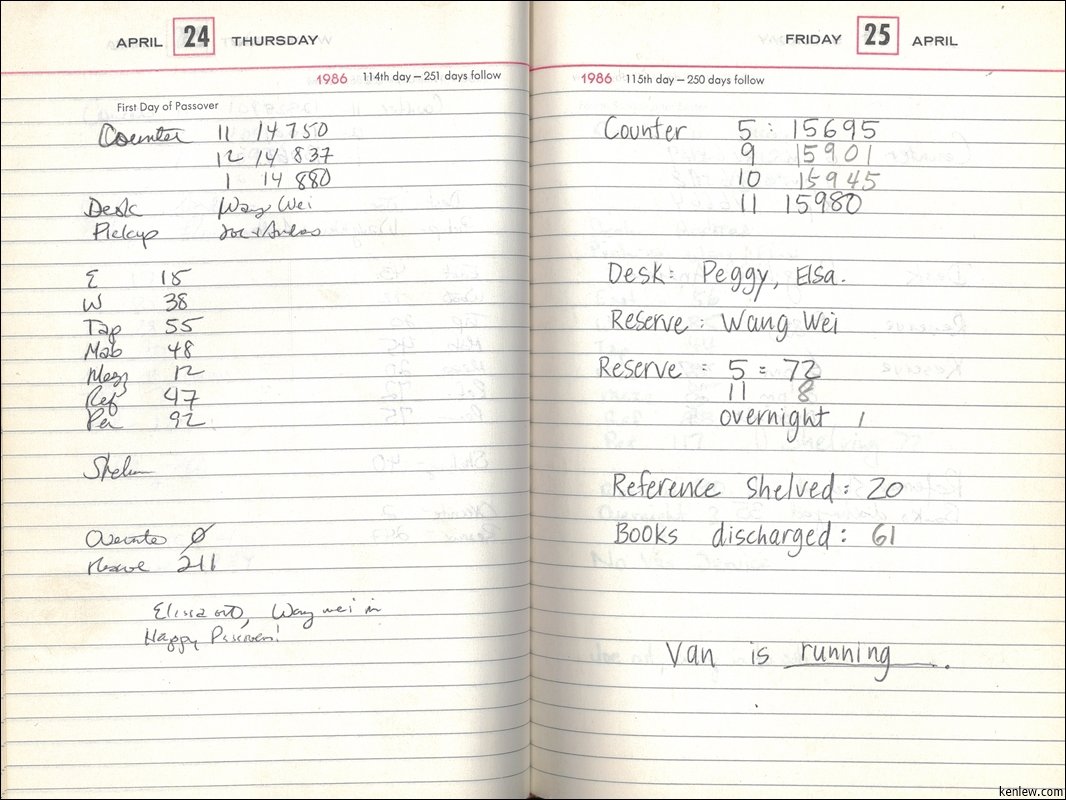 APRIL 24 THURSDAY
1986 114th day — 251 days follow
First Day of Passover
Counter 11 14750
12 14 837
1 14 880
Desk Wang Wei
Pickup
E 15
W 38
Tap 55
Mob 48
12
Ref 47
Per 92
Ø
reserve 211
Elissa out, Wang wei in
Happy Passover!
FRIDAY 25 APRIL
1986 115th day — 250 days follow
Counter 5 : 15695
9 15901
10 15945
11 15980
Desk: Peggy, Elsa.
Reserve : Wang Wei
Reserve : 5 = 72
11 8
overnight 1
Reference Shelved: 20
Books discharged: 61
Van is running.
kenlew.com